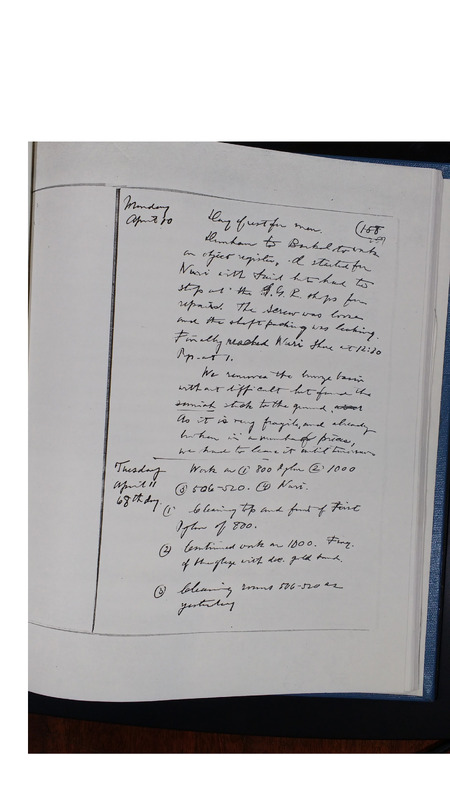 Monday
April 10
Day of rest for men. (168
Dunham to Barkal to work
on object register. I started for
Nuri with Said but had to
stop at the S.G.R. shops for
repairs. The screw was loose
and the shaft packing was leaking.
Finally reached Nuri shore at 12:30
Pyr. at 1.
We removed the bronze basin
without difficulty but found the
stuck to the ground
As it is very fragile, and already
broken in a number of pieces,
we had to leave it until tomorrow
Tuesday
April 11
68th day.
Work on (1) 800 Pylon (2) 1000
(3) 506-520. (4) Nuri.
(1) Cleaning up and found of First
Pylon of 800.
(2) Continued work on 1000. Frag.
of with dec. gold band.
(3) Cleaning rooms 506-520 as
yesterday